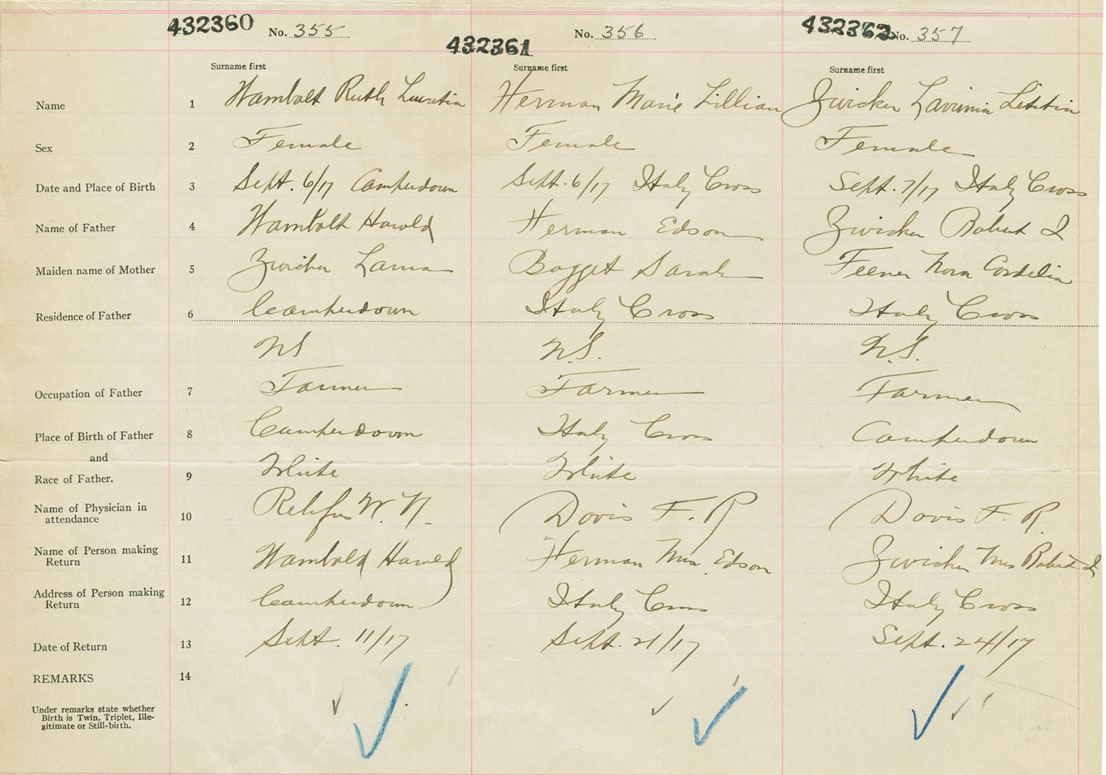 432360 No. 355 432361 No. 356 432362 No. 357
Surname first Surname first Surname first
Name 1 Wambolt Ruth Lucretia Herman Marie Lillian Zwicker Lavinia Letitia
Sex 2 Female Female Female
Date and Place of Birth 3 Sept. 6/17 Camperdown Sept. 6/17 Italy Cross Sept. 7/17 Italy Cross
Name of Father 4 Wambolt Harold Herman Edson Zwicker Robert I
Maiden name of Mother 5 Zwicker Herman Sarah Feener Nora Cordelia
Residence of Father 6 Camperdown Italy Cross Italy Cross
NS N.S. N.S.
Occupation of Father 7 Farmer Farmer Farmer
Place of Birth of Father 8 Camperdown Italy Cross Camperdown
and
Race of Father. 9 White White White
Name of Physician in
attendance 10 W. N. Davis F. R Davis F. R.
Name of Person making
Return 11 Wambold Harold Herman Mrs. Edson Zwicker Mrs Robert I
Address of Person making
Return 12 Camperdown Italy Cross Italy Cross
Date of Return 13 Sept. 11/17 Sept. 21/17 Sept. 24/17
REMARKS 14
Under remarks state whether
Birth is Twin, Triplet, Ille-
gitimate or Still-birth.